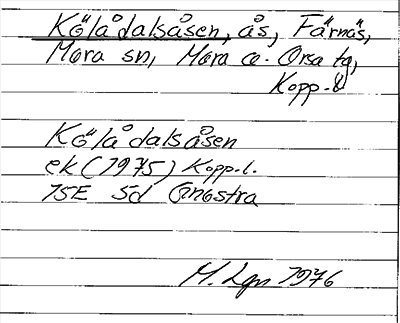 Kölådalsåsen, ås, Färnäs,
Mora sn, Mora o. Orsa tg,
Kopp. l
Kölådalsåsen
ek (1975) Kopp. l.
15E 5d Gnostra
M. Lgn 1976